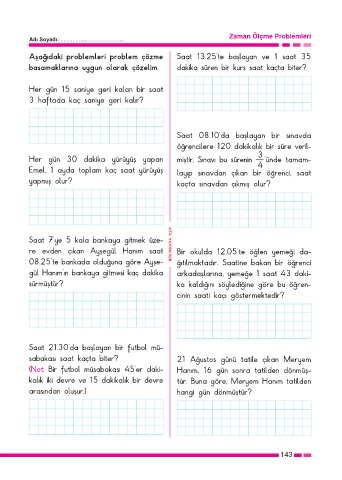 Zaman Ölçme Problemleri
Adı Soyadı: ........................................
Aşağıdaki problemleri problem çözme
basamaklarına uygun olarak çözelim.
Her gün 15 saniye geri kalan bir saat
3 haftada kaç saniye geri kalır?
Her gün 30 dakika yürüyüş yapan
Emel, 1 ayda toplam kaç saat yürüyüş
yapmış olur?
Saat 7'ye 5 kala bankaya gitmek üze-
re evden çıkan Ayşegül Hanım saat
08.25'te bankada olduğuna göre Ayşe-
gül Hanım'ın bankaya gitmesi kaç dakika
sürmüştür?
Saat 21.30'da başlayan bir futbol mü-
sabakası saat kaçta biter?
(Not: Bir futbol müsabakası 45'er daki-
kalık iki devre ve 15 dakikalık bir devre
arasından oluşur.)
Saat 13.25'te başlayan ve 1 saat 35
dakika süren bir kurs saat kaçta biter?
Saat 08.10'da başlayan bir sınavda
öğrencilere 120 dakikalık bir süre veril-
miştir. Sınavı bu sürenin 3/4 ünde tamam-
layıp sınavdan çıkan bir öğrenci, saat
kaçta sınavdan çıkmış olur?
Bir okulda 12.05'te öğlen yemeği da-
ğıtılmaktadır. Saatine bakan bir öğrenci
arkadaşlarına, yemeğe 1 saat 43 daki-
ka kaldığını söylediğine göre bu öğren-
cinin saati kaçı göstermektedir?
21 Ağustos günü tatile çıkan Meryem
Hanım, 16 gün sonra tatilden dönmüş-
tür. Buna göre, Meryem Hanım tatilden
hangi gün dönmüştür?
143